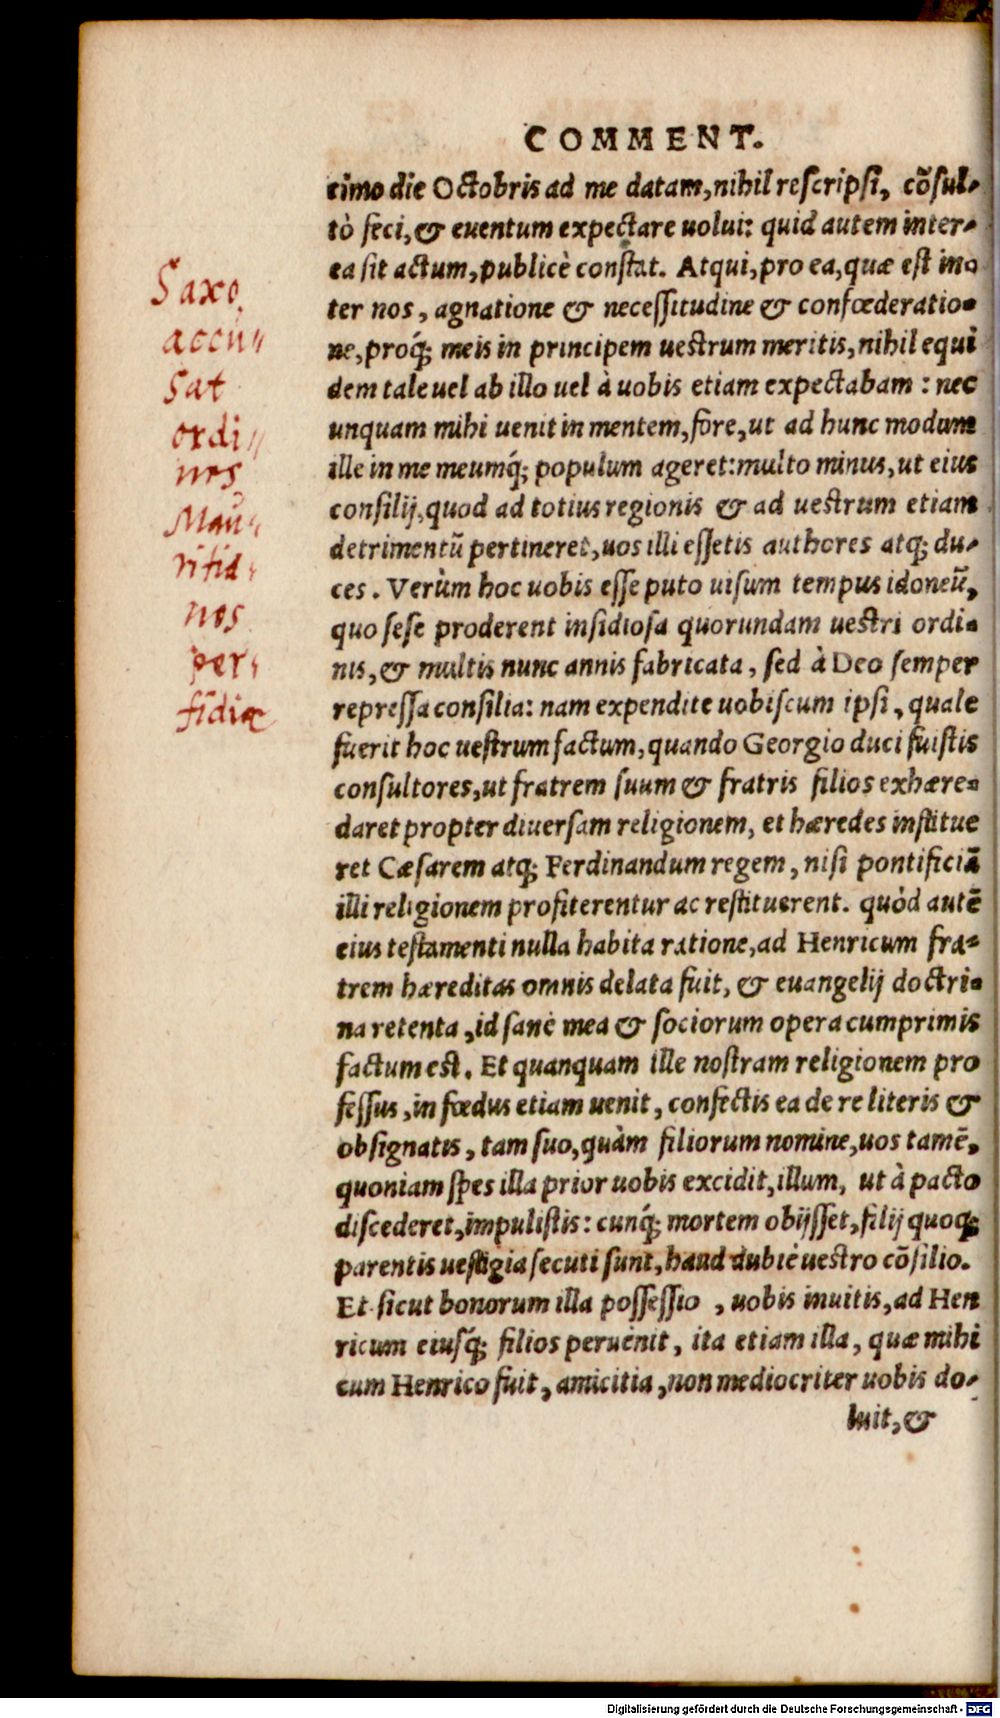 COMMENT.
timo die Octobris ad me datam, nihil rescripsi, cõsul-
tò feci, & euentum expectare uolui: quid autem inter-
ea sit actum, publicè constat. Atqui, pro ea, quæ est in-
ter nos, agnatione & necessitudine & confœderatio-
ne, proq́; meis in principem uestrum meritis, nihil equi
dem tale uel ab illo uel à uobis etiam expectabam: nec
unquam mihi uenit in mentem, fore, ut ad hunc modum
ille in me meumq́; populum ageret: multo minus, ut eius
consilij, quod ad totius regionis & ad uestrum etiam
detrimentũ pertineret, uos illi essetis authores atq; du-
ces. Verùm hoc uobis esse puto uisum tempus idoneũ,
quo sese proderent insidiosa quorundam uestri ordi-
nis, & multis nunc annis fabricata, sed à Deo semper
repressa consilia: nam expendite uobiscum ipsi, quale
fuerit hoc uestrum factum, quando Georgio duci fuistis
consultores, ut fratrem suum & fratris filios exhære-
daret propter diuersam religionem, et hæredes institue
ret Cæsarem atq; Ferdinandum regem, nisi pontificiã
illi religionem profiterentur ac restituerent. quòd autẽ
eius testamenti nulla habita ratione, ad Henricum fra-
trem hæreditas omnis delata fuit, & euangelij doctri-
na retenta, id sanè mea & sociorum opera cumprimis
factum est. Et quanquam ille nostram religionem pro
fessus, in fœdus etiam uenit, confectis ea de re literis &
obsignatis, tam suo, quàm filiorum nomine, uos tamẽ,
quoniam spes illa prior uobis excidit, illum, ut à pacto
discederet, impulistis: cunq́; mortem obijsset, filij quoq;
parentis uestigia secuti sunt, haud dubiè uestro cõsilio.
Et sicut bonorum illa possessio, uobis inuitis, ad Hen
ricum eiusq́; filios peruenit, ita etiam illa, quæ mihi
cum Henrico fuit, amicitia, non mediocriter uobis do-
luit, &
Saxo
accu//
sat
ordi//
nes
Mau-
ritia-
nos
per-
fidiæ
Digitalisierung gefördert durch die Deutsche Forschungsgemeinschaft - DFG